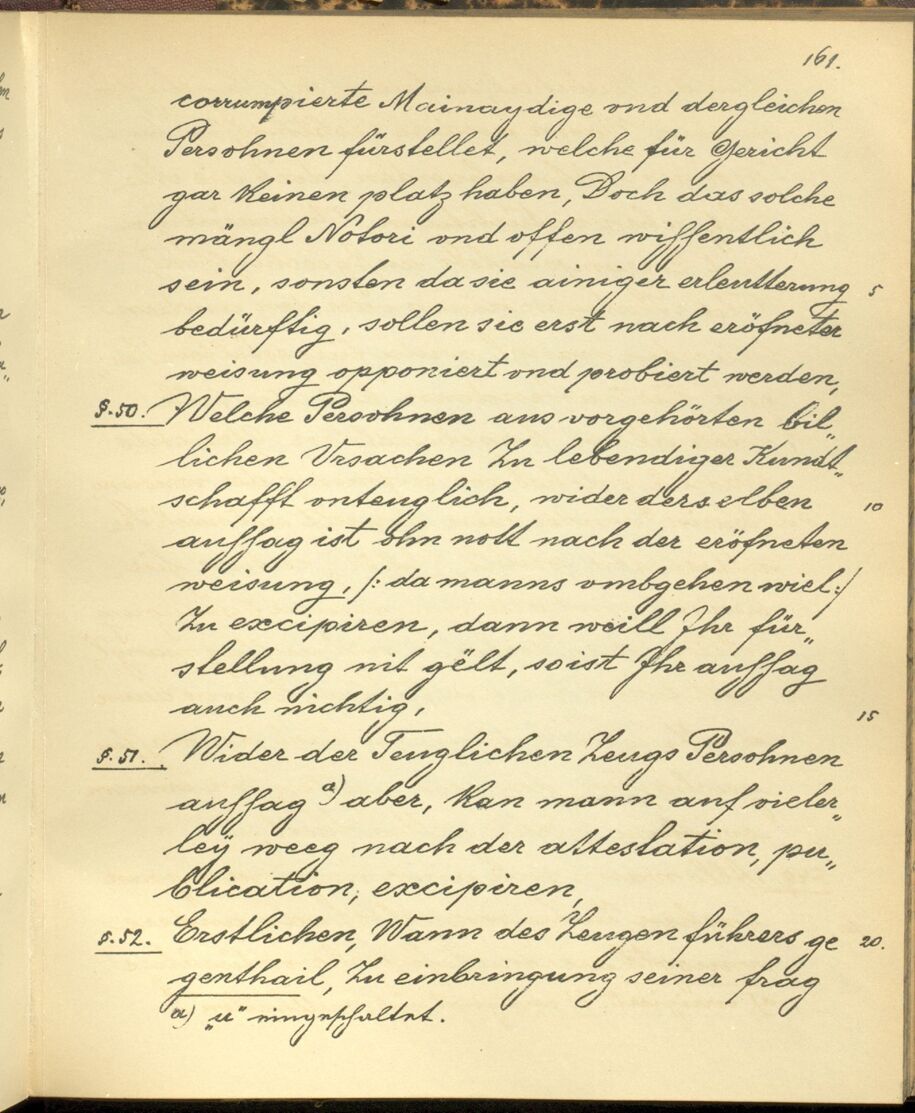 161.
corrumpierte Mainaydige vnd dergleichen
Persohnen fürstellet, welche für Gericht
gar keinen platz haben, Doch das solche
mängl Notori vnd offen wissentlich
sein, sonsten da sie ainiger erleutterung 5
bedürftig, sollen sie erst nach eröfneter
weisung opponiert vnd probiert werden,
§. 50. Welche Persohnen aus vorgehörten bil„
lichen Vrsachen Zu lebendiger Kundt„
schafft vnteuglich, wider derselben 10
aussag ist ohn nott nach der eröfneten
weisung, /: da manns vmbgehen wiel :/
Zu excipiren, dann weill Ihr für„
stellung nit gëlt, so ist Ihr aussag
auch nichtig, 15
§. 51. Wider der Teuglichen Zeugs Persohnen
aussag a) aber, kan mann auf vieler„
leÿ weeg nach der attestation, pu„
blication, excipiren,
§. 52. Erstlichen, Wann des Zeugen führers ge 20.
genthail, Zu einbringung seiner frag
a) „u“ eingeschaltet.